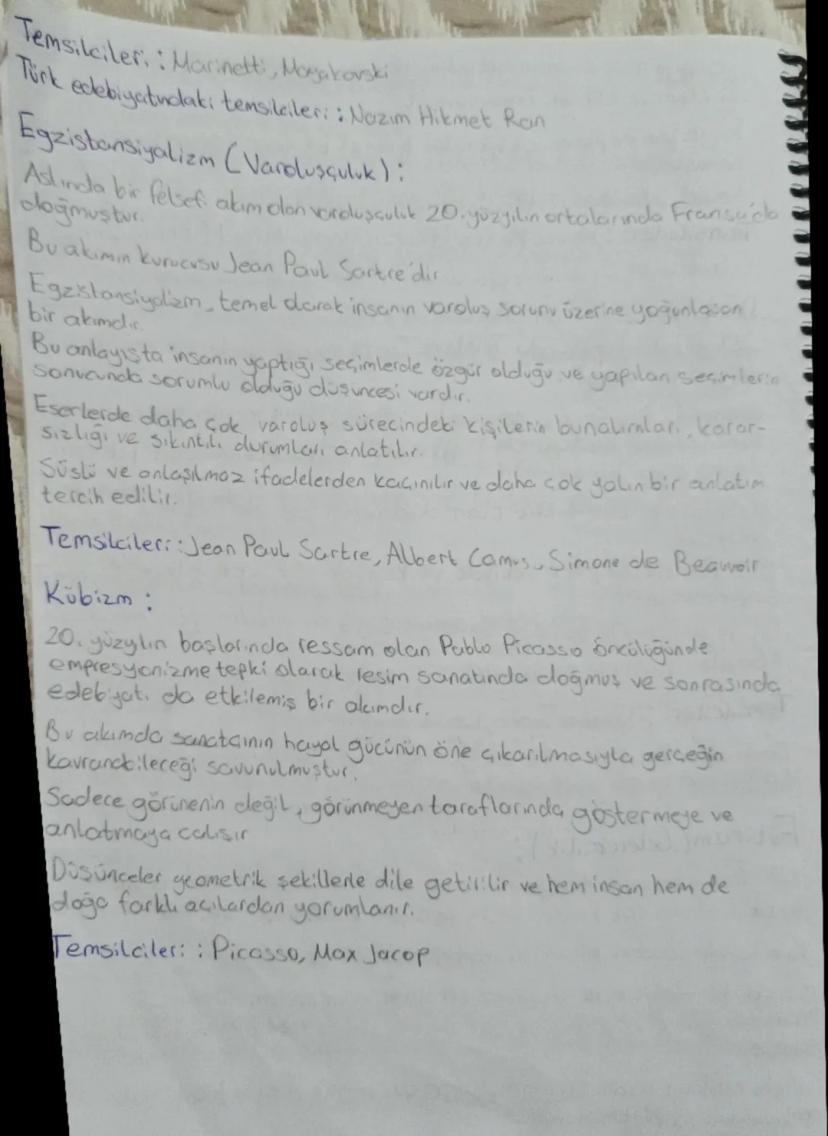 Temsilcileri : Marinetti, Mayakovski
Türk edebiyatındaki temsilcileri : Nazım Hikmet Ran
Egzistansiyalizm (Varoluşçuluk) :
Aslında bir felsefi akım olan varoluşçuluk 20. yüzyılın ortalarında Fransa'da
doğmuştur.
Bu akımın kurucusu Jean Paul Sartre'dir
Egzistansiyalizm, temel olarak insanın varoluş sorunu üzerine yoğunlaşan
bir akımdır.
Bu anlayışta insanın yaptığı seçimlerde özgür olduğu ve yapılan seçimlerin
sonucunda sorumlu olduğu düşüncesi vardır.
Eserlerde daha çok varoluş sürecindeki kişilerin bunalımları, karar-
sızlığı ve sıkıntılı durumları anlatılır.
Süslü ve anlaşılmaz ifadelerden kaçınılır ve daha çok yalın bir anlatım
tercih edilir.
Temsilcileri : Jean Paul Sartre, Albert Camus, Simone de Beauvoir
Kübizm :
20. yüzylın başlarında ressam olan Pablo Picasso öncülüğünde
empresyonizme tepki olarak resim sanatında doğmuş ve sonrasında
edebiyatı da etkilemiş bir akımdır.
Bu akımda sanatçının hayal gücünün öne çıkarılmasıyla gerçeğin
kavranabileceği savunulmuştur.
Sadece görünenin değil, görünmeyen taraflarında göstermeye ve
anlatmaya çalışır
Düşünceler geometrik şekillerle dile getirilir ve hem insan hem de
doğa farklı açılardan yorumlanır.
Temsilcileri : Picasso, Max Jacop